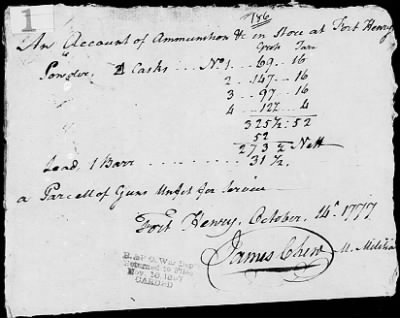 1
186
An Account of Ammunition &c in Store at Fort Henry
Gross Tare
Powder, 4 Casks .... No. 1 .. 69 .. 16
2 .. 147 .. 16
3 .. 97 .. 16
4 .. 12½ .. 4
325½ : 52
52
273½ Nett
Lead, 1 Barr .......... 31½
a Parcell of Guns Unfit for Service
Fort Henry, October, 14th 1777
James Chew M. Militia
R. & P. O. War Dep
Returned to Files
Nov 16 1897
CARDED